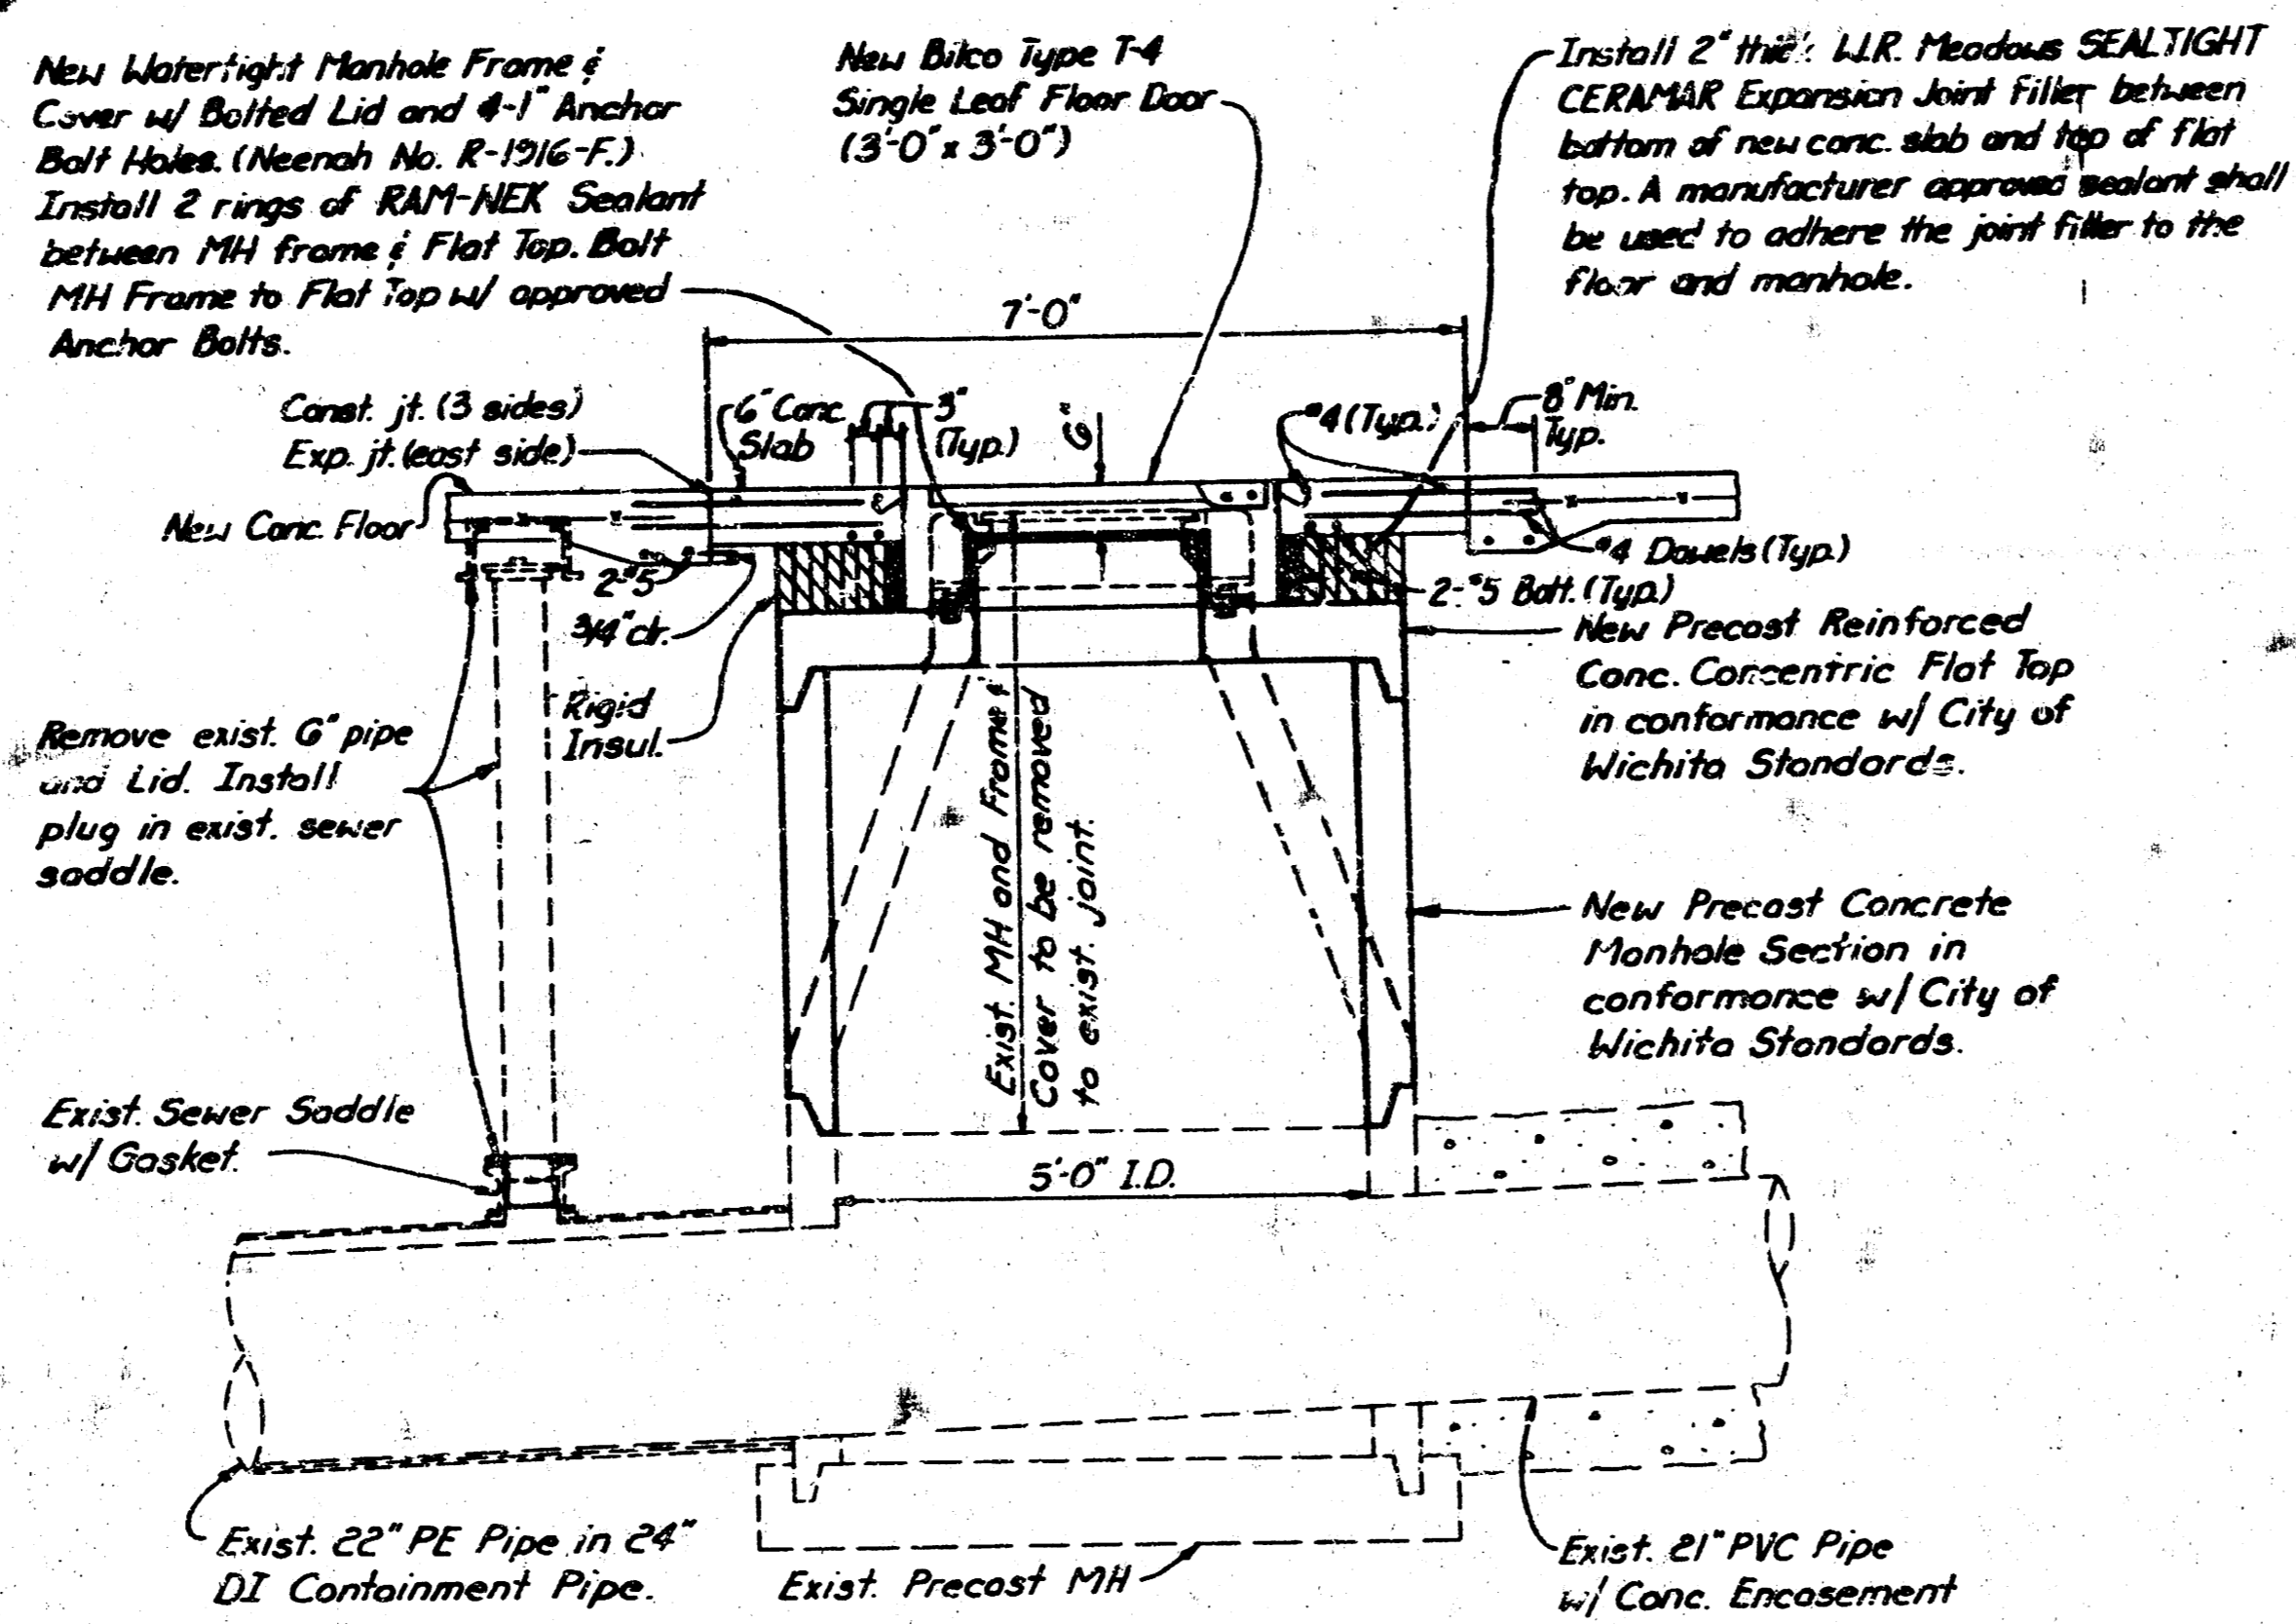 New Watertight Manhole Frame &
Cover w/ Bolted Lid and 4-1" Anchor
Bolt Holes. (Neenah No. R-1916-F.)
Install 2 rings of RAM-NEK Sealant
between MH frame & Flat Top. Bolt
MH Frame to Flat Top w/ approved
Anchor Bolts.
New Bilco Type T-4
Single Leaf Floor Door
(3'-0" x 3'-0")
Install 2" thick W.R. Meadows SEALTIGHT
CERAMAR Expansion Joint Filler between
bottom of new conc. slab and top of flat
top. A manufacturer approved sealant shall
be used to adhere the joint filler to the
floor and manhole.
7'-0"
Const. jt. (3 sides)
Exp. jt. (east side)
6" Conc.
Slab
3"
(Typ.)
6"
#4 (Typ.)
8" Min.
Typ.
New Conc. Floor
2-#5
3/4" clr.
#4 Dowels (Typ.)
2-#5 Bott. (Typ.)
Rigid
Insul.
New Precast Reinforced
Conc. Concentric Flat Top
in conformance w/ City of
Wichita Standards.
Remove exist. 6" pipe
and Lid. Install
plug in exist. sewer
saddle.
Exist. MH and Frame &
Cover to be removed
to exist. joint.
New Precast Concrete
Manhole Section in
conformance w/ City of
Wichita Standards.
Exist. Sewer Saddle
w/ Gasket.
5'-0" I.D.
Exist. 22" PE Pipe in 24"
DI Containment Pipe.
Exist. Precast MH
Exist. 21" PVC Pipe
w/ Conc. Encasement